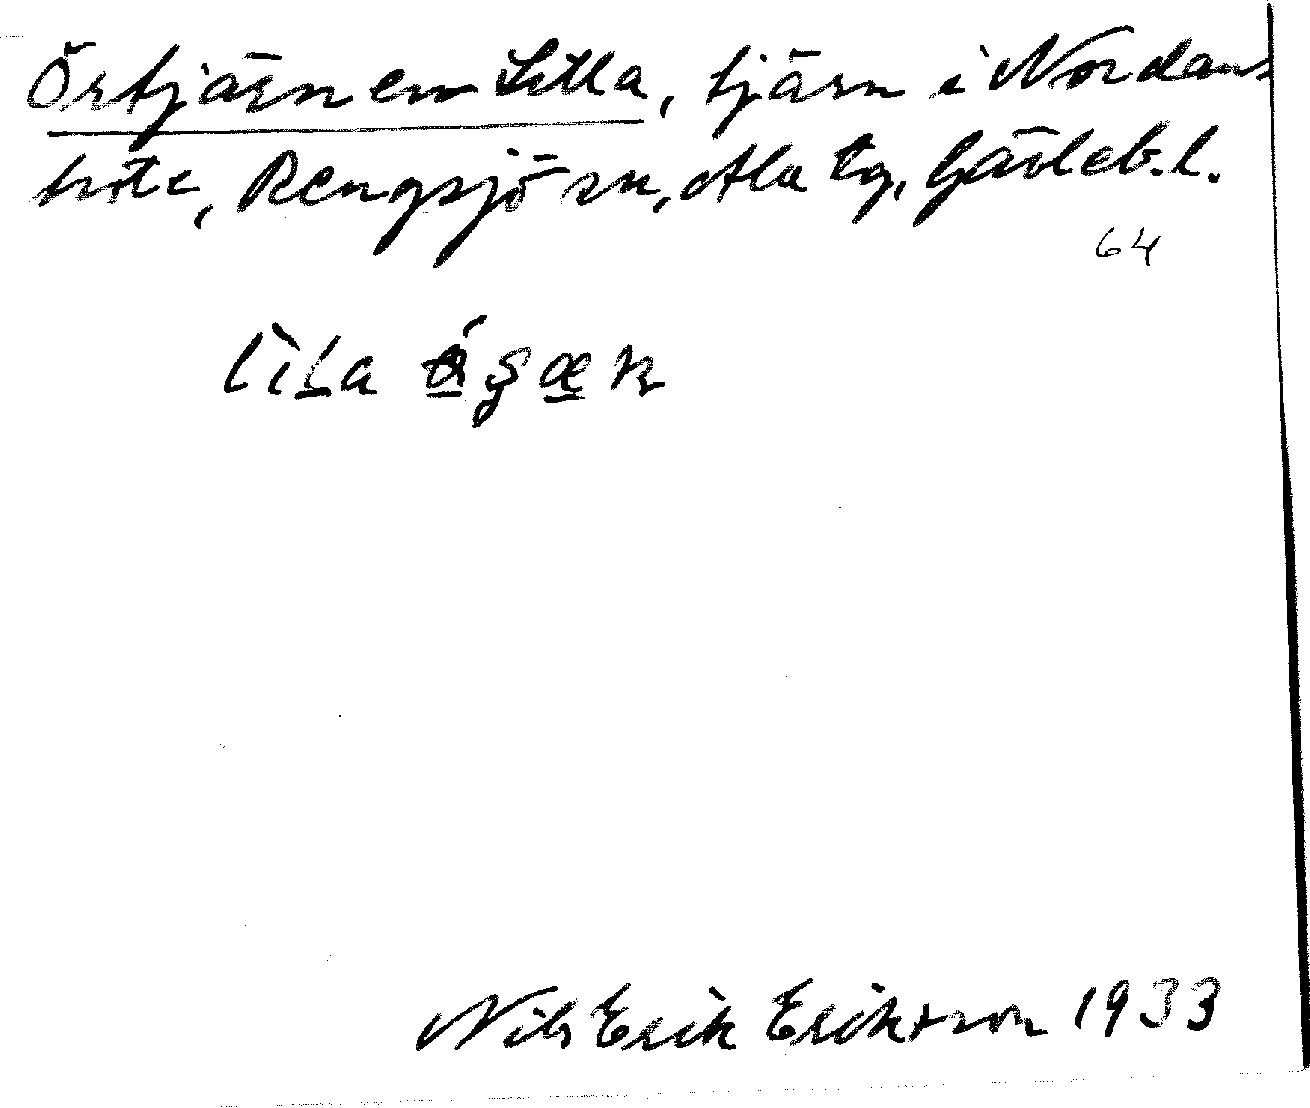 Örtjärnen Lilla, tjärn i Nordans
bråte, Rengsjö sn, Ala tg, Gävleb. l.
64
lìla
Nils Erik Eriksson 1933